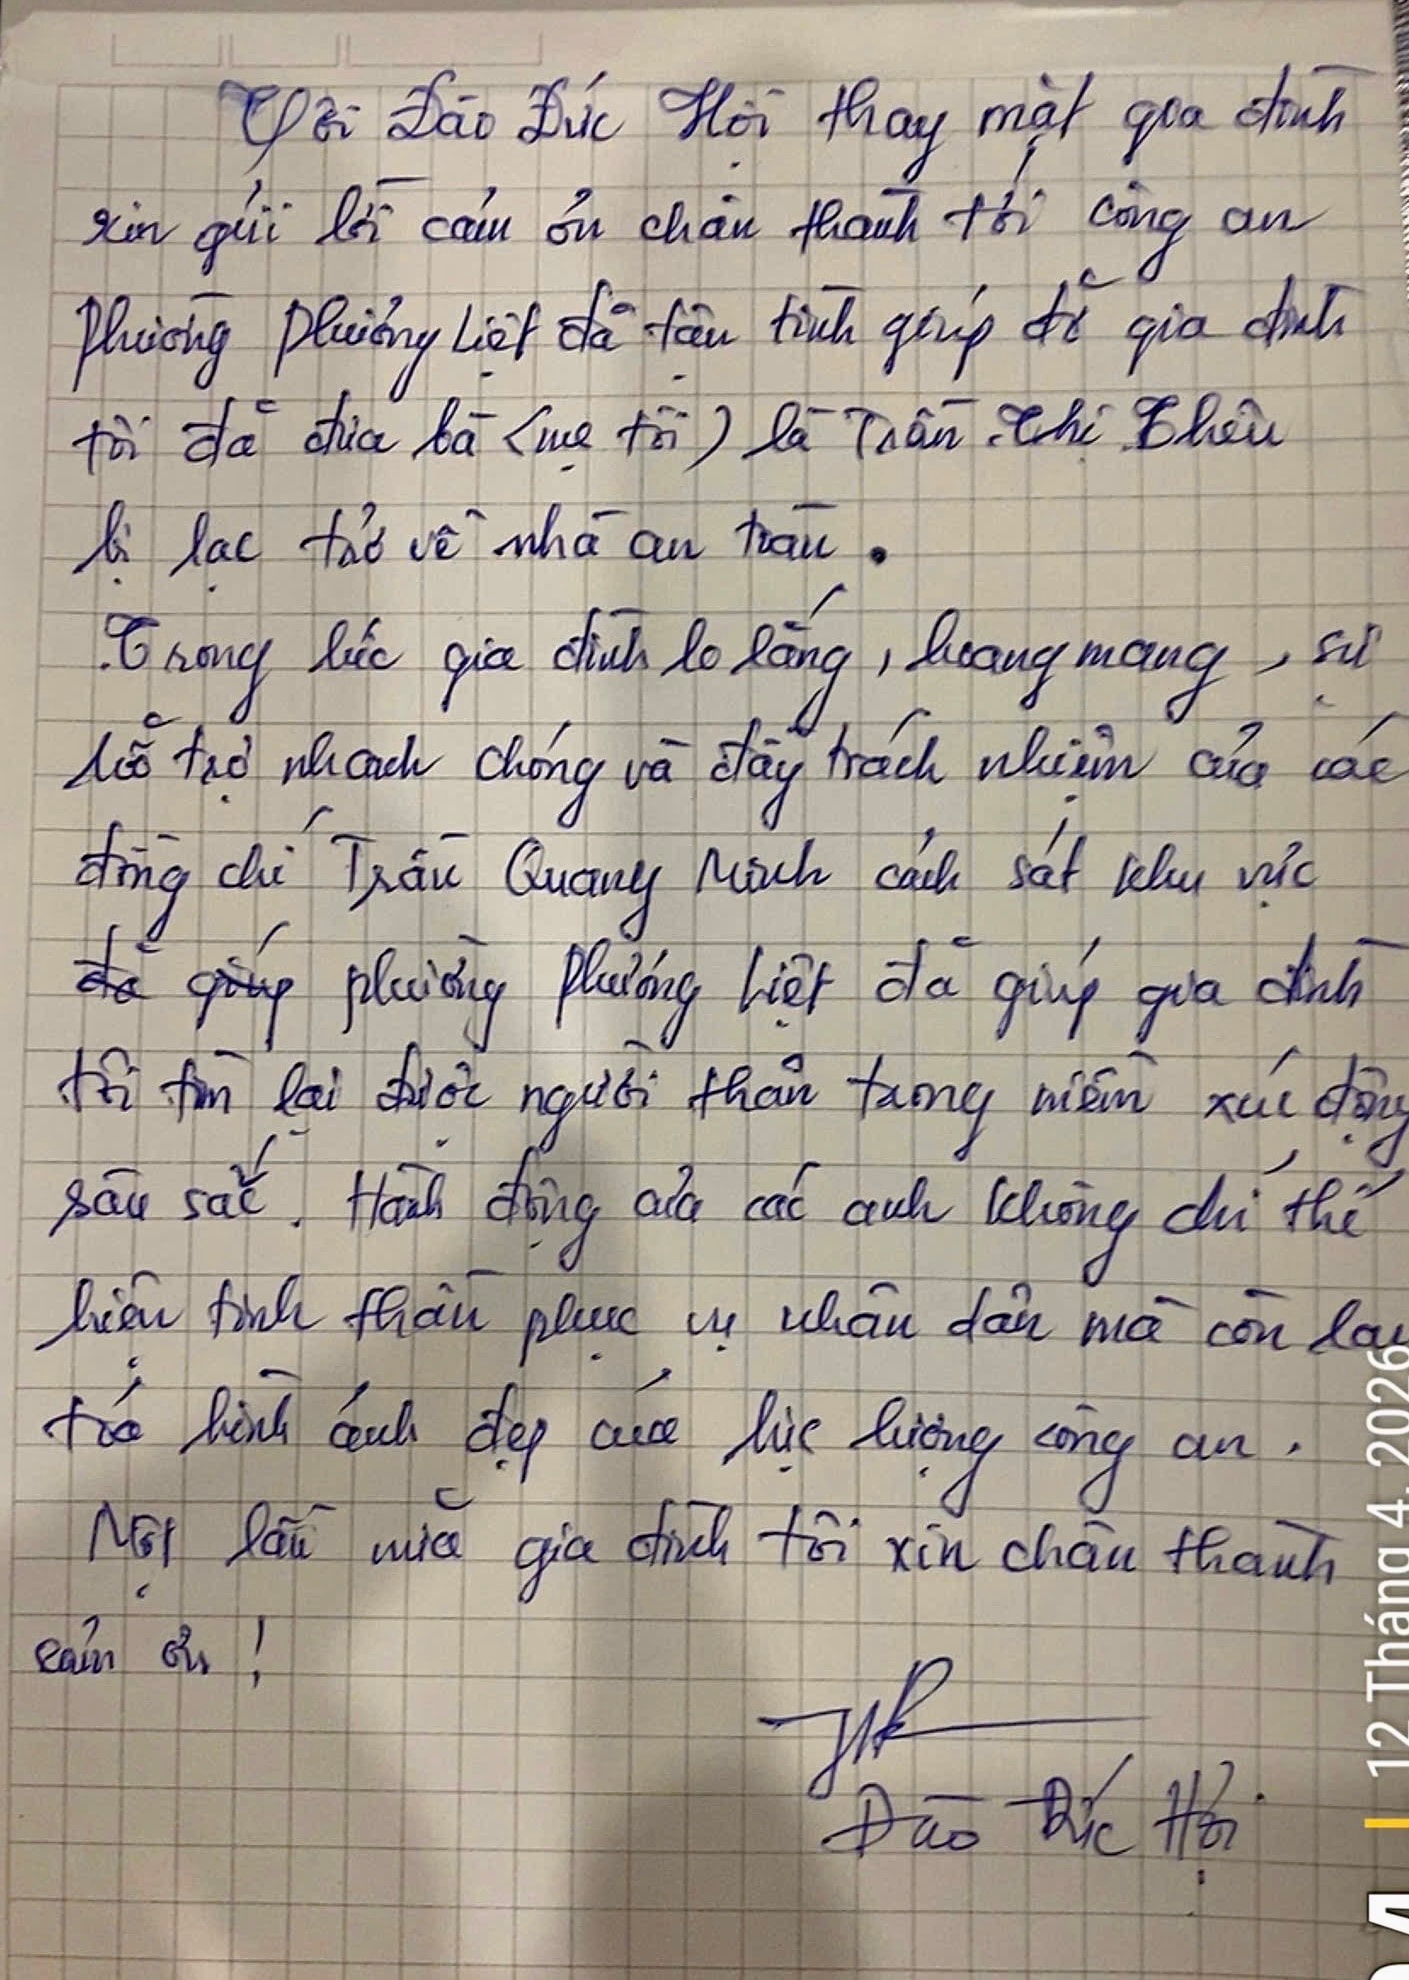 Tôi Đào Đức Hội thay mặt gia đình
xin gửi lời cảm ơn chân thành tới công an
phường Phương Liệt đã tận tình giúp đỡ gia đình
tôi đã đưa bà (mẹ tôi) là Trần Thị Thêu
bị lạc trở về nhà an toàn.
Trong lúc gia đình lo lắng, hoang mang, sự
hỗ trợ nhanh chóng và đầy trách nhiệm của các
đồng chí Trần Quang Minh cảnh sát khu vực
đã giúp phường Phương Liệt đã giúp gia đình
tôi tìm lại được người thân trong niềm xúc động
sâu sắc. Hành động của các anh không chỉ thể
hiện tinh thần phục vụ nhân dân mà còn lan
toả hình ảnh đẹp của lực lượng công an.
Một lần nữa gia đình tôi xin chân thành
cảm ơn!
Đào Đức Hội
12 Tháng 4, 2026